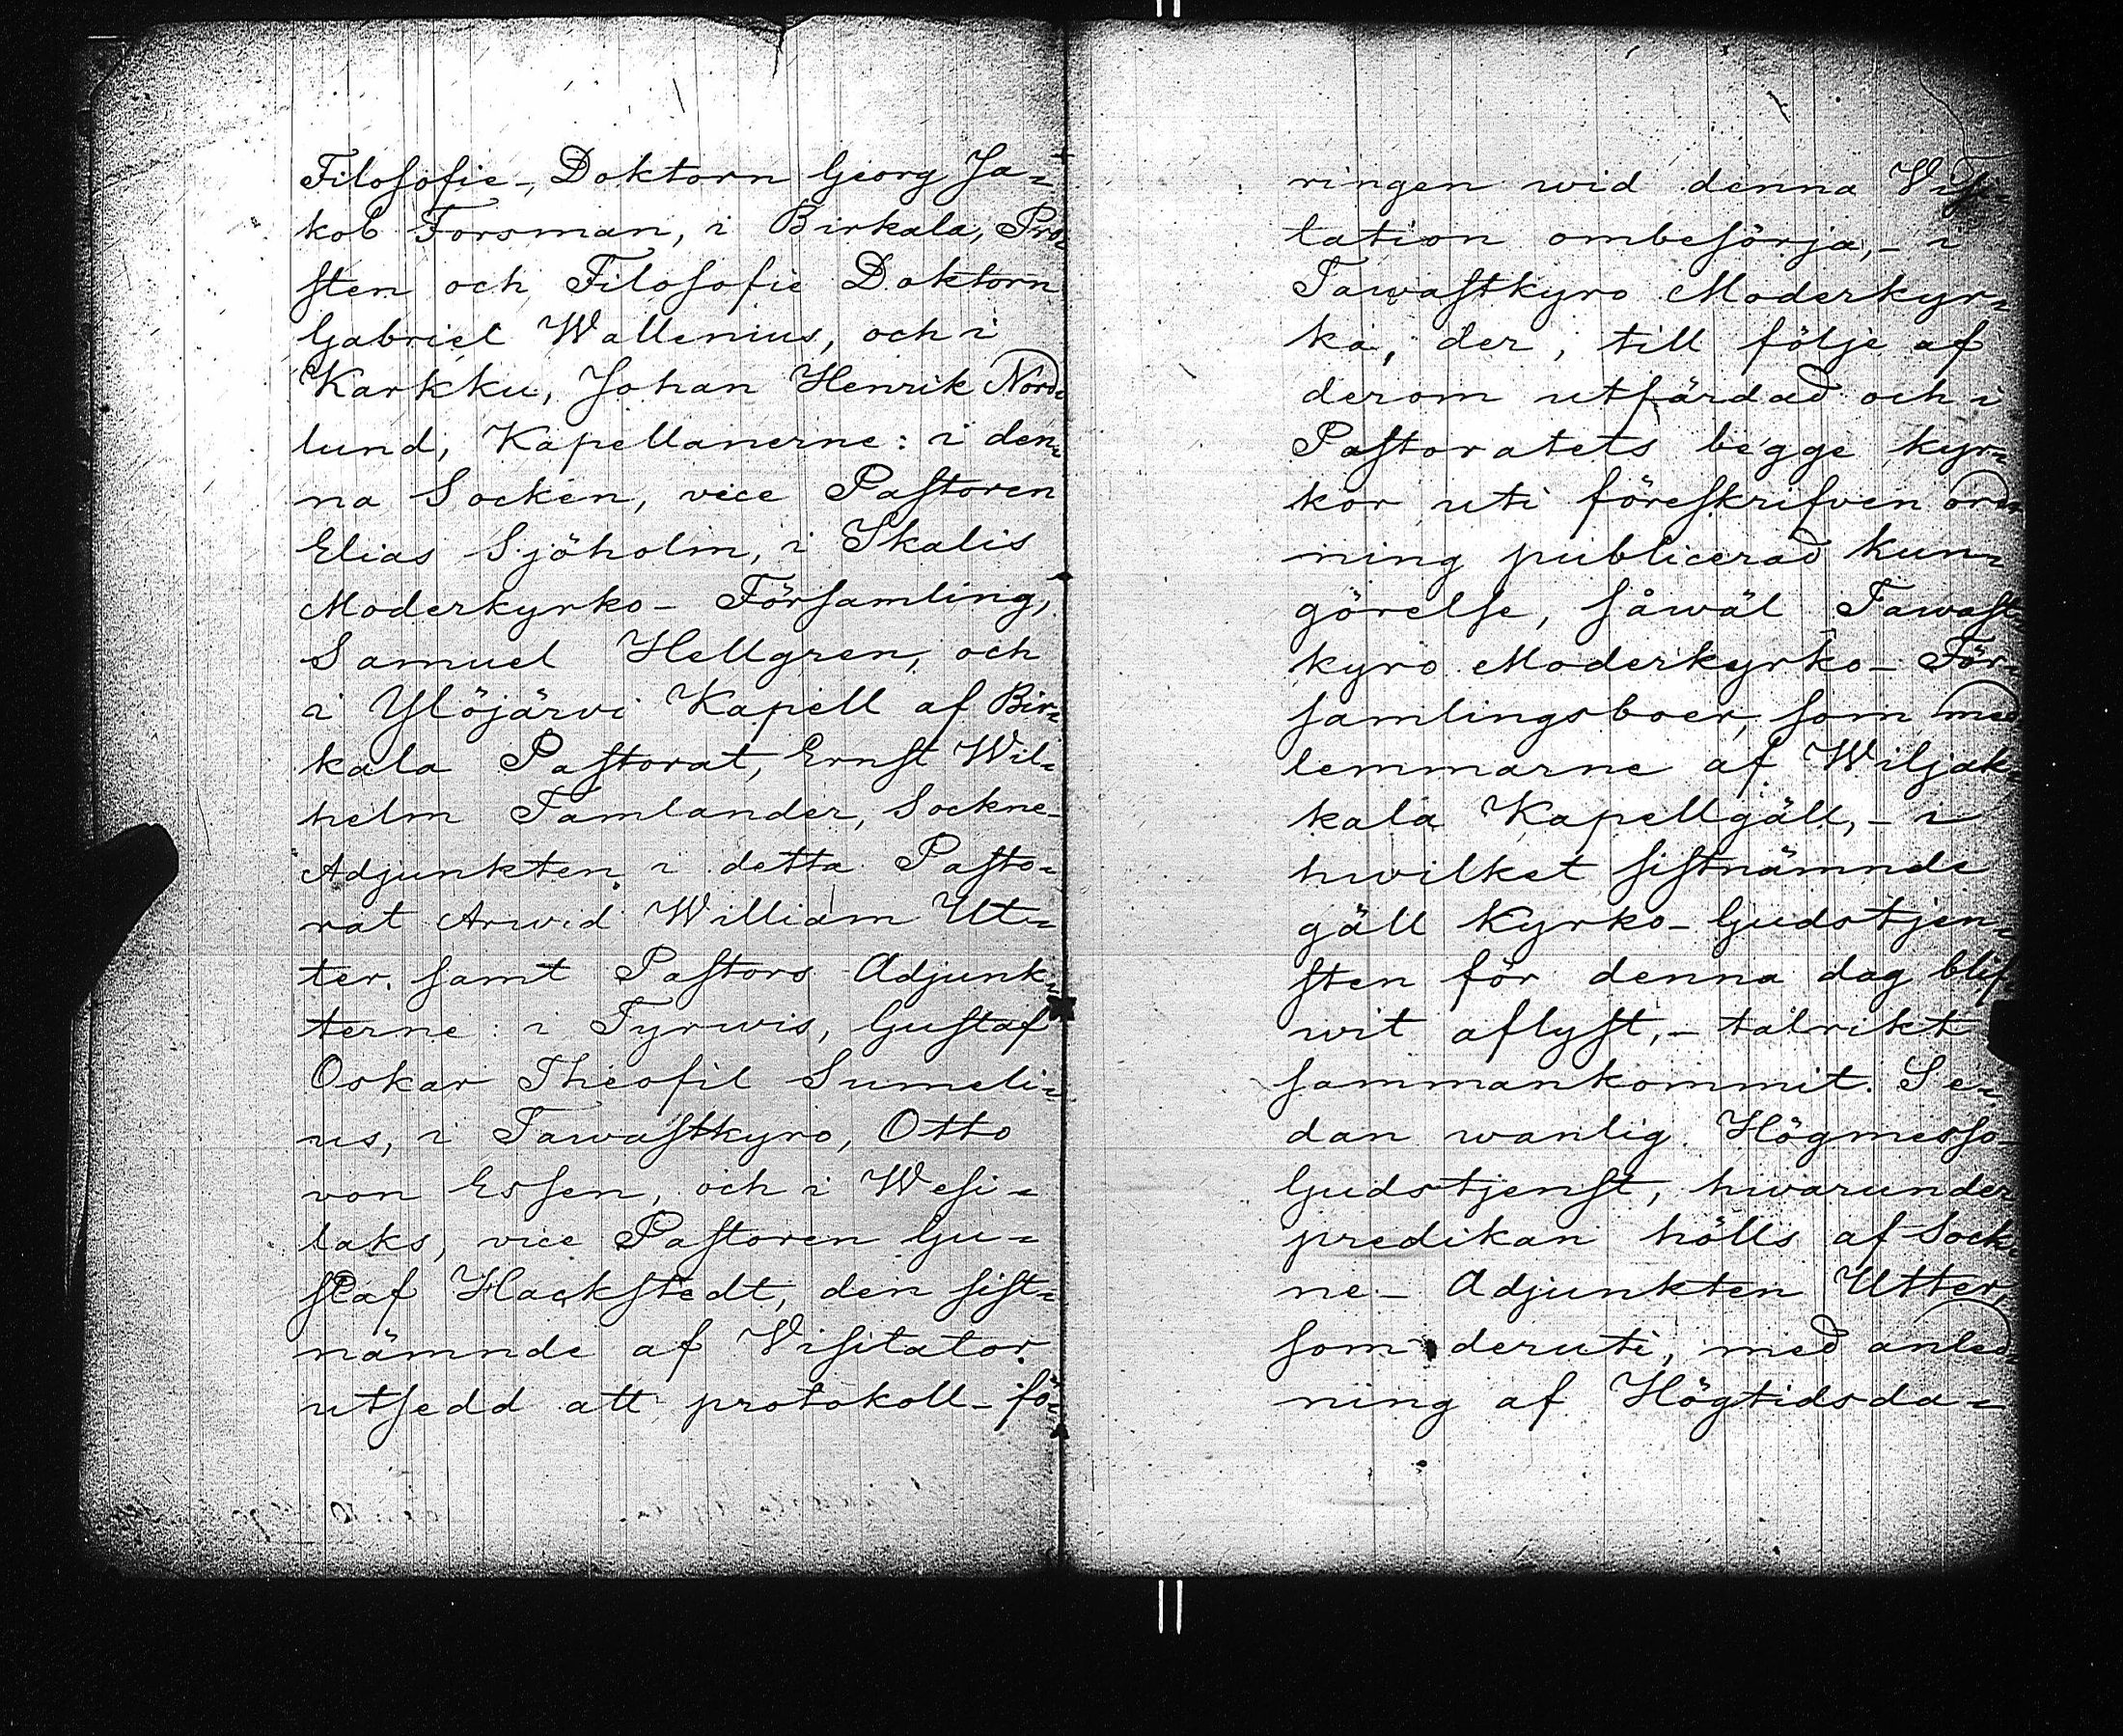 Filosofie-Doktorn Georg Ja-
kob Forsman, i Birkala, Pro-
sten och Filosofie Doktorn
Gabriel Wallenius, och i
Karkku, Johan Henrik Nord-
lund, Kapellanerne: i den-
na Socken, vice Pastoren
Elias Sjöholm, i Ikalis
Moderkyrko-Församling,
Samuel Hellgren, och
i Ylöjärvi Kapell af Bir-
kala Pastorat, Ernst Wil-
helm Tamlander, Sockne-
Adjunkten i detta Pasto-
rat Arwid William Ut-
ter, samt Pastors Adjunk-
terne: i Tyrwis, Gustaf
Oskar Theofil Sumeli-
us, i Tawastkyro, Otto
von Essen, och i Wesi-
laks, vice Pastoren Gu-
staf Hackstedt, den sist-
nämnde af Visitator
utsedd att protokoll-fö-
ringen wid denna Visi-
tation ombesörja,- i
Tawastkyro Moderkyr-
ka, der, till följe af
derom utfärdad och i
Pastoratets begge kyr-
kor uti föreskrifven ord-
ning publicerad kun-
görelse, såwäl Tawast-
kyro Moderkyrko-För-
samlingsboer, som med-
lemmarne af Wiljak-
kala Kapellgäll,- i
hwilket sistnämnde
gäll Kyrko-Gudstjen-
sten för denna dag blif-
wit aflyst,- talrikt
sammankommit. Se-
dan wanlig Högmesso-
Gudstjenst, hwarunder
predikan hölls af Sock-
ne-Adjunkten Utter,
som deruti, med anled-
ning af Högtidsda-